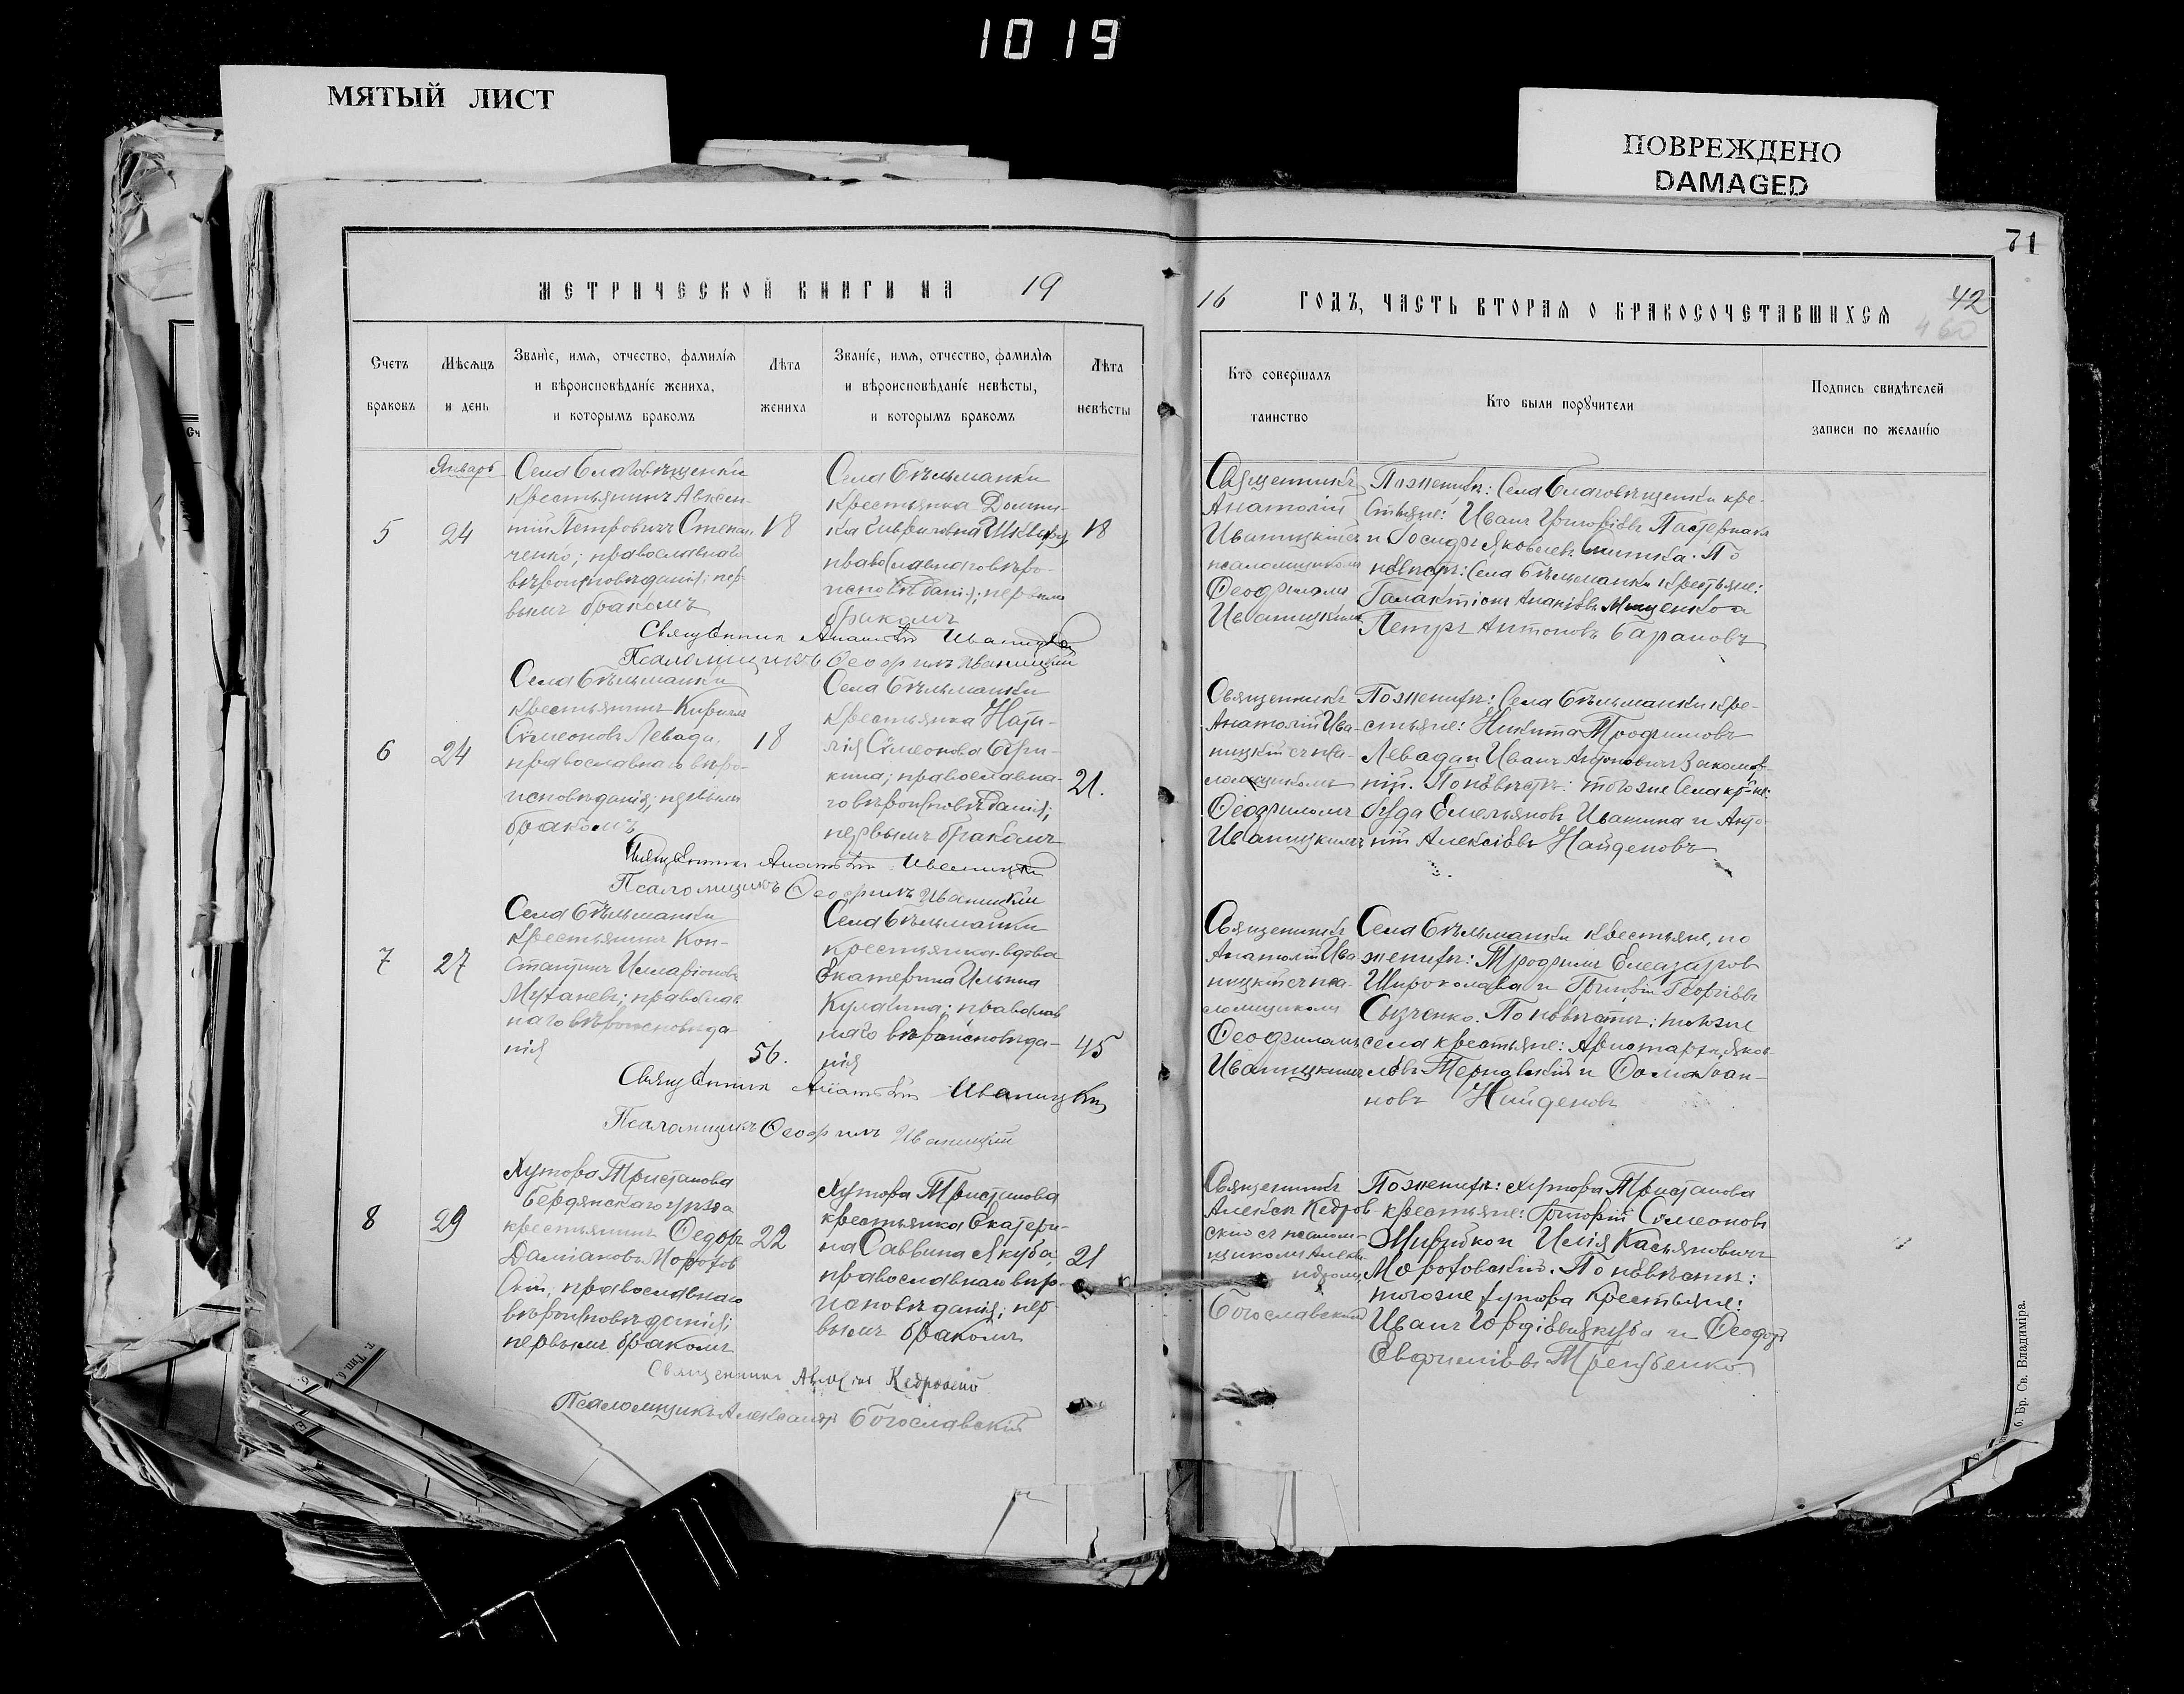 1019
МЯТЫЙ ЛИСТ
ПОВРЕЖДЕНО
DAMAGED
71
МЕТРИЧЕСКОЙ КНИГИ НА 19
16 ГОДЪ, ЧАСТЬ ВТОРАЯ О БРАКОСОЧЕТАВШИХСЯ
42
460
Счетъ
браковъ
Мѣсяцъ
и день
Званіе, имя, отчество, фамилія
и вѣроисповѣданіе жениха,
и которымъ бракомъ
Лѣта
жениха
Званіе, имя, отчество, фамилія
и вѣроисповѣданіе невѣсты,
и которымъ бракомъ
Лѣта
невѣсты
Кто совершалъ
таинство
Кто были поручители
Подпись свидѣтелей
записи по желанію
Январь
5
24
Села Благовѣщенки
крестьянинъ Авксен-
тій Петровичъ Степан-
ченко; православнаго
вѣроисповѣданія; пер-
вымъ бракомъ
18
Села Бѣльманки
крестьянка Домни-
кія
православнаго вѣро-
исповѣданія; первымъ
бракомъ
18
Священникъ
Анатолій
Иваницкій съ
псаломщикомъ
Ѳеофиломъ
Иваницкимъ
По женихѣ: Села Благовѣщенки кре-
стьяне: Иванъ Григоріевъ Пастернакъ
и Іосифъ Яковлевъ По
невѣстѣ: Села Бѣльманки крестьяне:
Галактіонъ Ананіевъ Мищенко и
Петръ Антоновъ Барановъ
Священникъ Анатолій Иваницкій
Псаломщикъ Ѳеофилъ Иваницкій
6
24
Села Бѣльманки
крестьянинъ Кириллъ
Симеоновъ Левада,
православнаго вѣро-
исповѣданія; первымъ
бракомъ
18
Села Бѣльманки
крестьянка Ната-
лія Симеонова
православна-
го вѣроисповѣданія;
первымъ бракомъ
21.
Священникъ
Анатолій Ива-
ницкій съ пса-
ломщикомъ
Ѳеофиломъ
Иваницкимъ
По женихѣ: Села Бѣльманки кре-
стьяне: Никита Трофимовъ
Левада и Иванъ Антоновичъ
По невѣстѣ: того же села кр-не:
Емельяновъ Ивашина и Анто-
ній Алексіевъ Найденовъ
Священникъ Анатолій Иваницкій
Псаломщикъ Ѳеофилъ Иваницкій
7
27
Села Бѣльманки
крестьянинъ Кон-
стантинъ Иларіоновъ
Муханевъ; православ-
наго вѣроисповѣда-
нія
56.
Села Бѣльманки
крестьянка-вдова
Екатерина Ильина
Кулагина; православ
наго вѣроисповѣда-
нія
45
Священникъ
Анатолій Ива-
ницкій съ пса-
ломщикомъ
Ѳеофиломъ
Иваницкимъ
Села Бѣльманки крестьяне, по
женихѣ: Трофимъ Елеазаров
Широколава и Григорій Георгіевъ
По невѣстѣ: того же
села крестьяне: Аристархъ Яков-
левъ Терновскій и Ѳома Иоан-
новъ Найденовъ
Священникъ Анатолій Иваницкій
Псаломщикъ Ѳеофилъ Иваницкій
8
29
Хутора Тристанова
Бердянскаго уѣзда
крестьянинъ Ѳедоръ
Даміановъ Морохов
скій, православнаго
вѣроисповѣданія;
первымъ бракомъ
22
Хутора Тристанова
крестьянка Екатери-
на Саввина Якуба,
православнаго вѣро-
исповѣданія; пер-
вымъ бракомъ
21
Священникъ
Алексій Кедров-
скій съ псалом-
щикомъ Алекс
Богославскій
По женихѣ: хутора Тристанова
крестьяне: Григорій Симеоновъ
Илія Касьяновичъ
Мороховскій. По невѣстѣ:
того же хутора крестьяне:
Иванъ Гордіевъ Якуба и Ѳеодоръ
Евфиміевъ Трегубенко
Священникъ Алексій Кедровскій
Псаломщикъ Александръ Богославскій
б. Бр. Св. Владиміра.